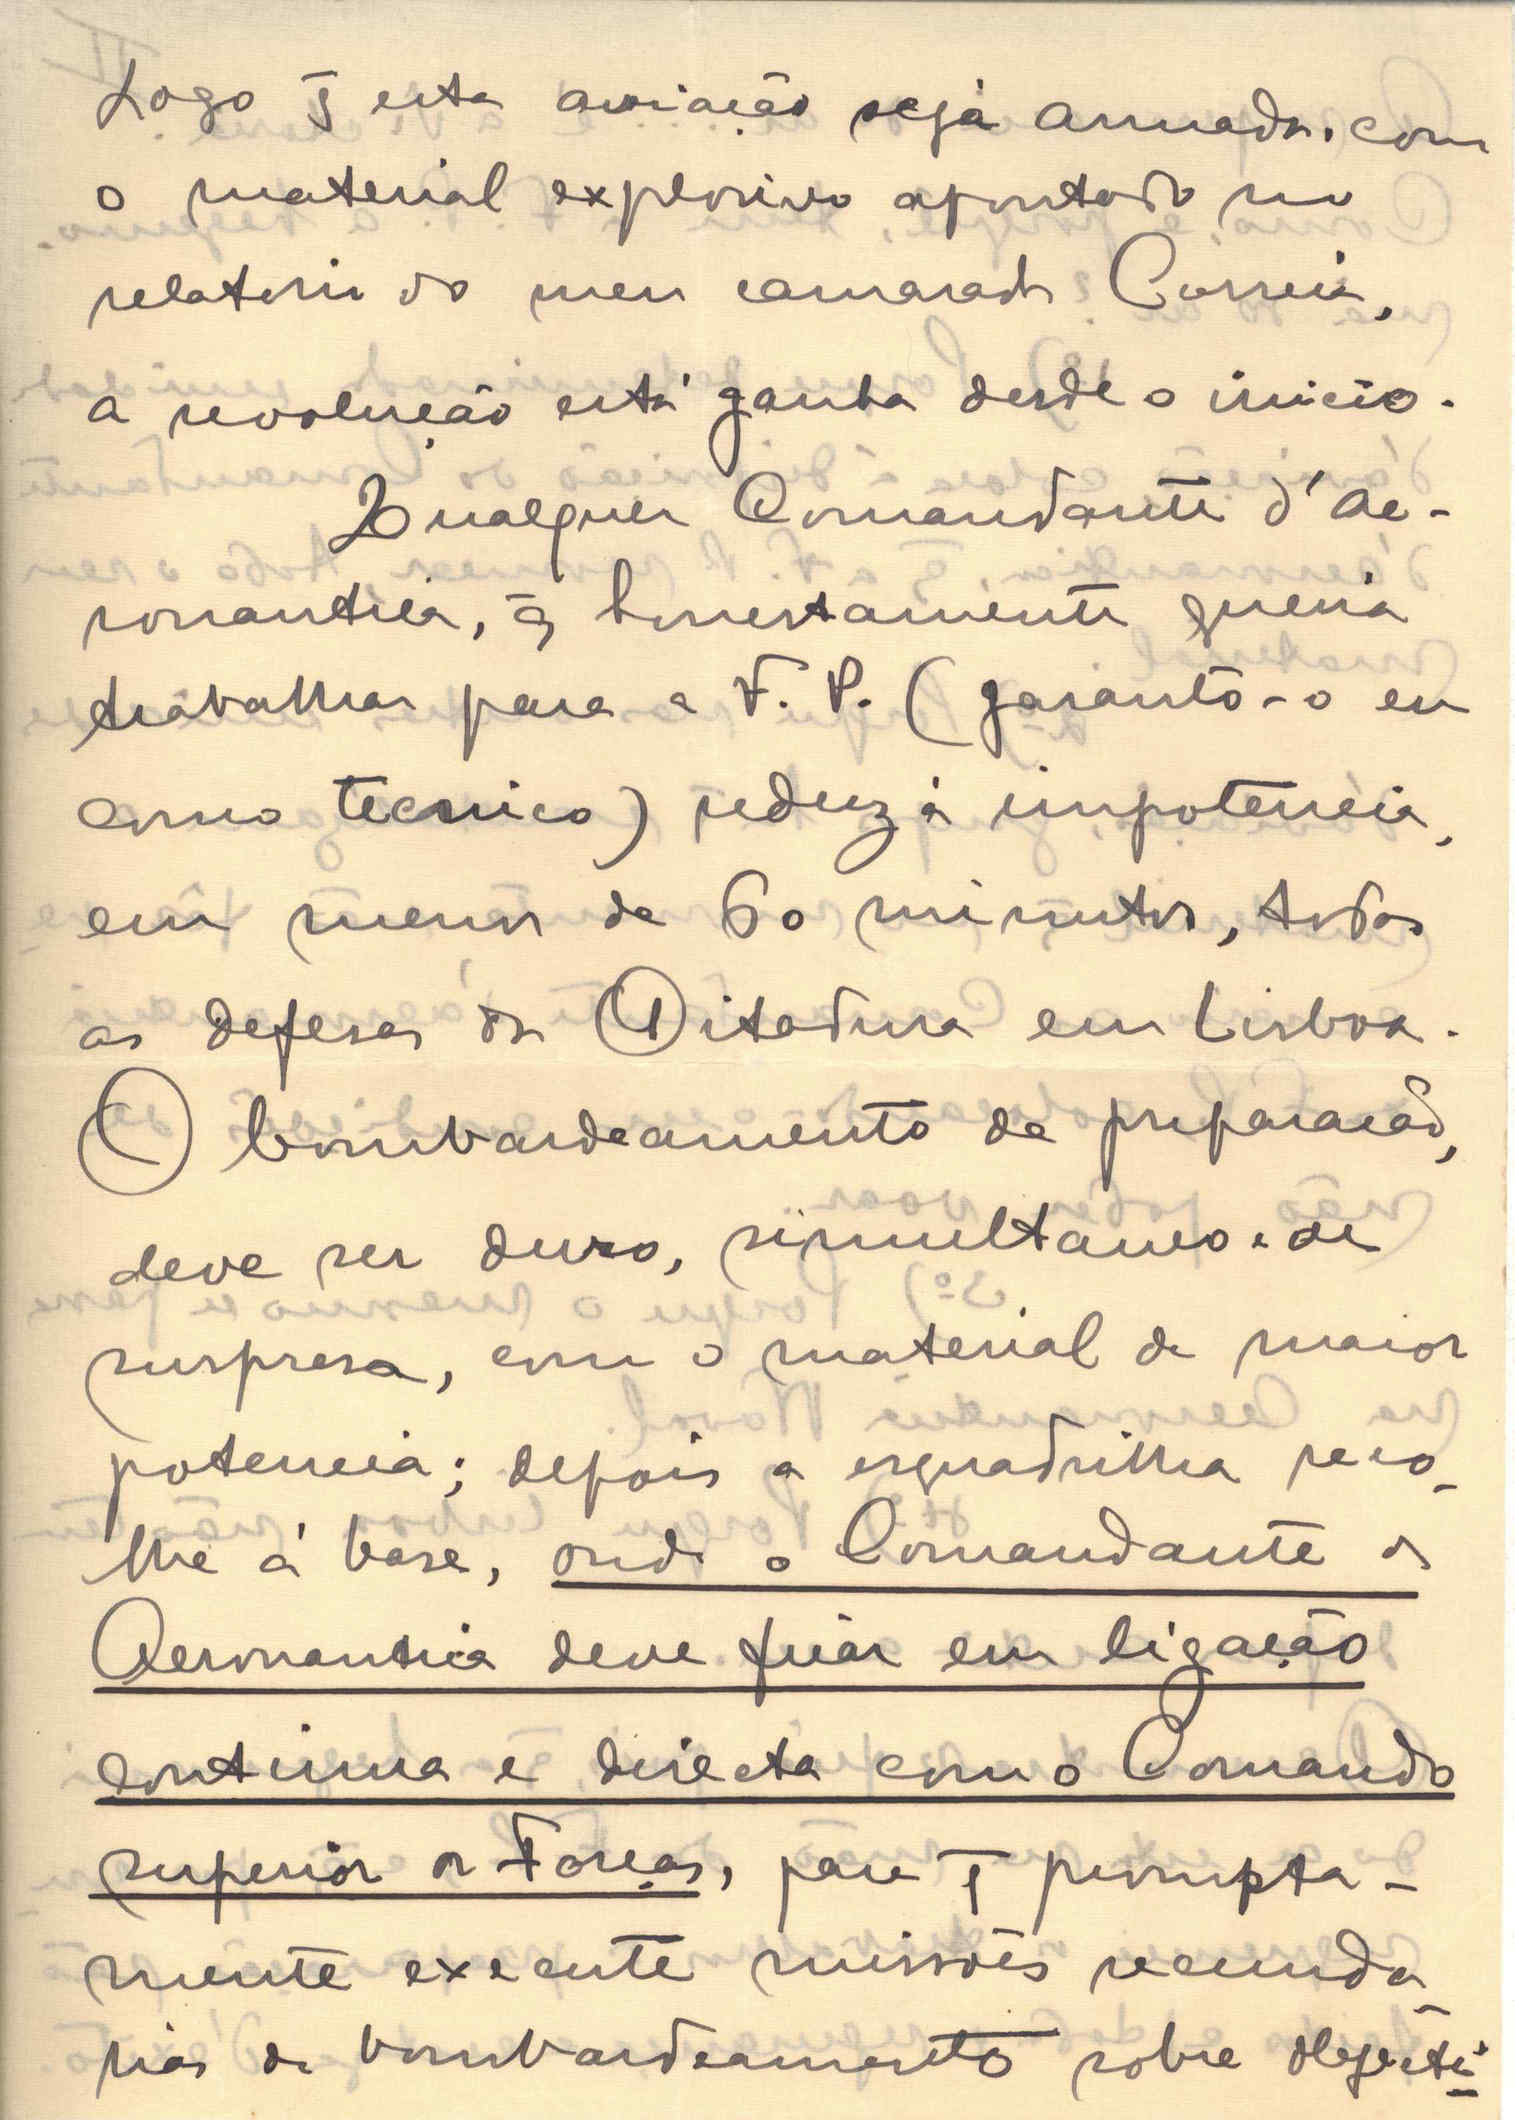 Logo q̃ esta aviação seja armada com
o material explosivo apontado no
relatorio do meu camarada Correia,
a revolução está ganha desde o inicio.
Qualquer Comandante d'Ae-
ronautica, q̃ honestamente queria
trabalhar para a F. P. (garanto-o eu
como tecnico) reduz á impotencia,
em menos de 60 minutos, todas
as defesas da Ditadura em Lisboa.
O bombardeamento de preparação,
deve ser duro, simultaneo e de
surpresa, com o material de maior
potencia; depois a esquadrilha reco-
lhe á base, onde o Comandante da
Aeronautica deve ficar em ligação
continua e directa com o Comando
superior das Forças, para q̃ prompta-
mente execute missões secunda-
rias de bombardeamento sobre objecti-